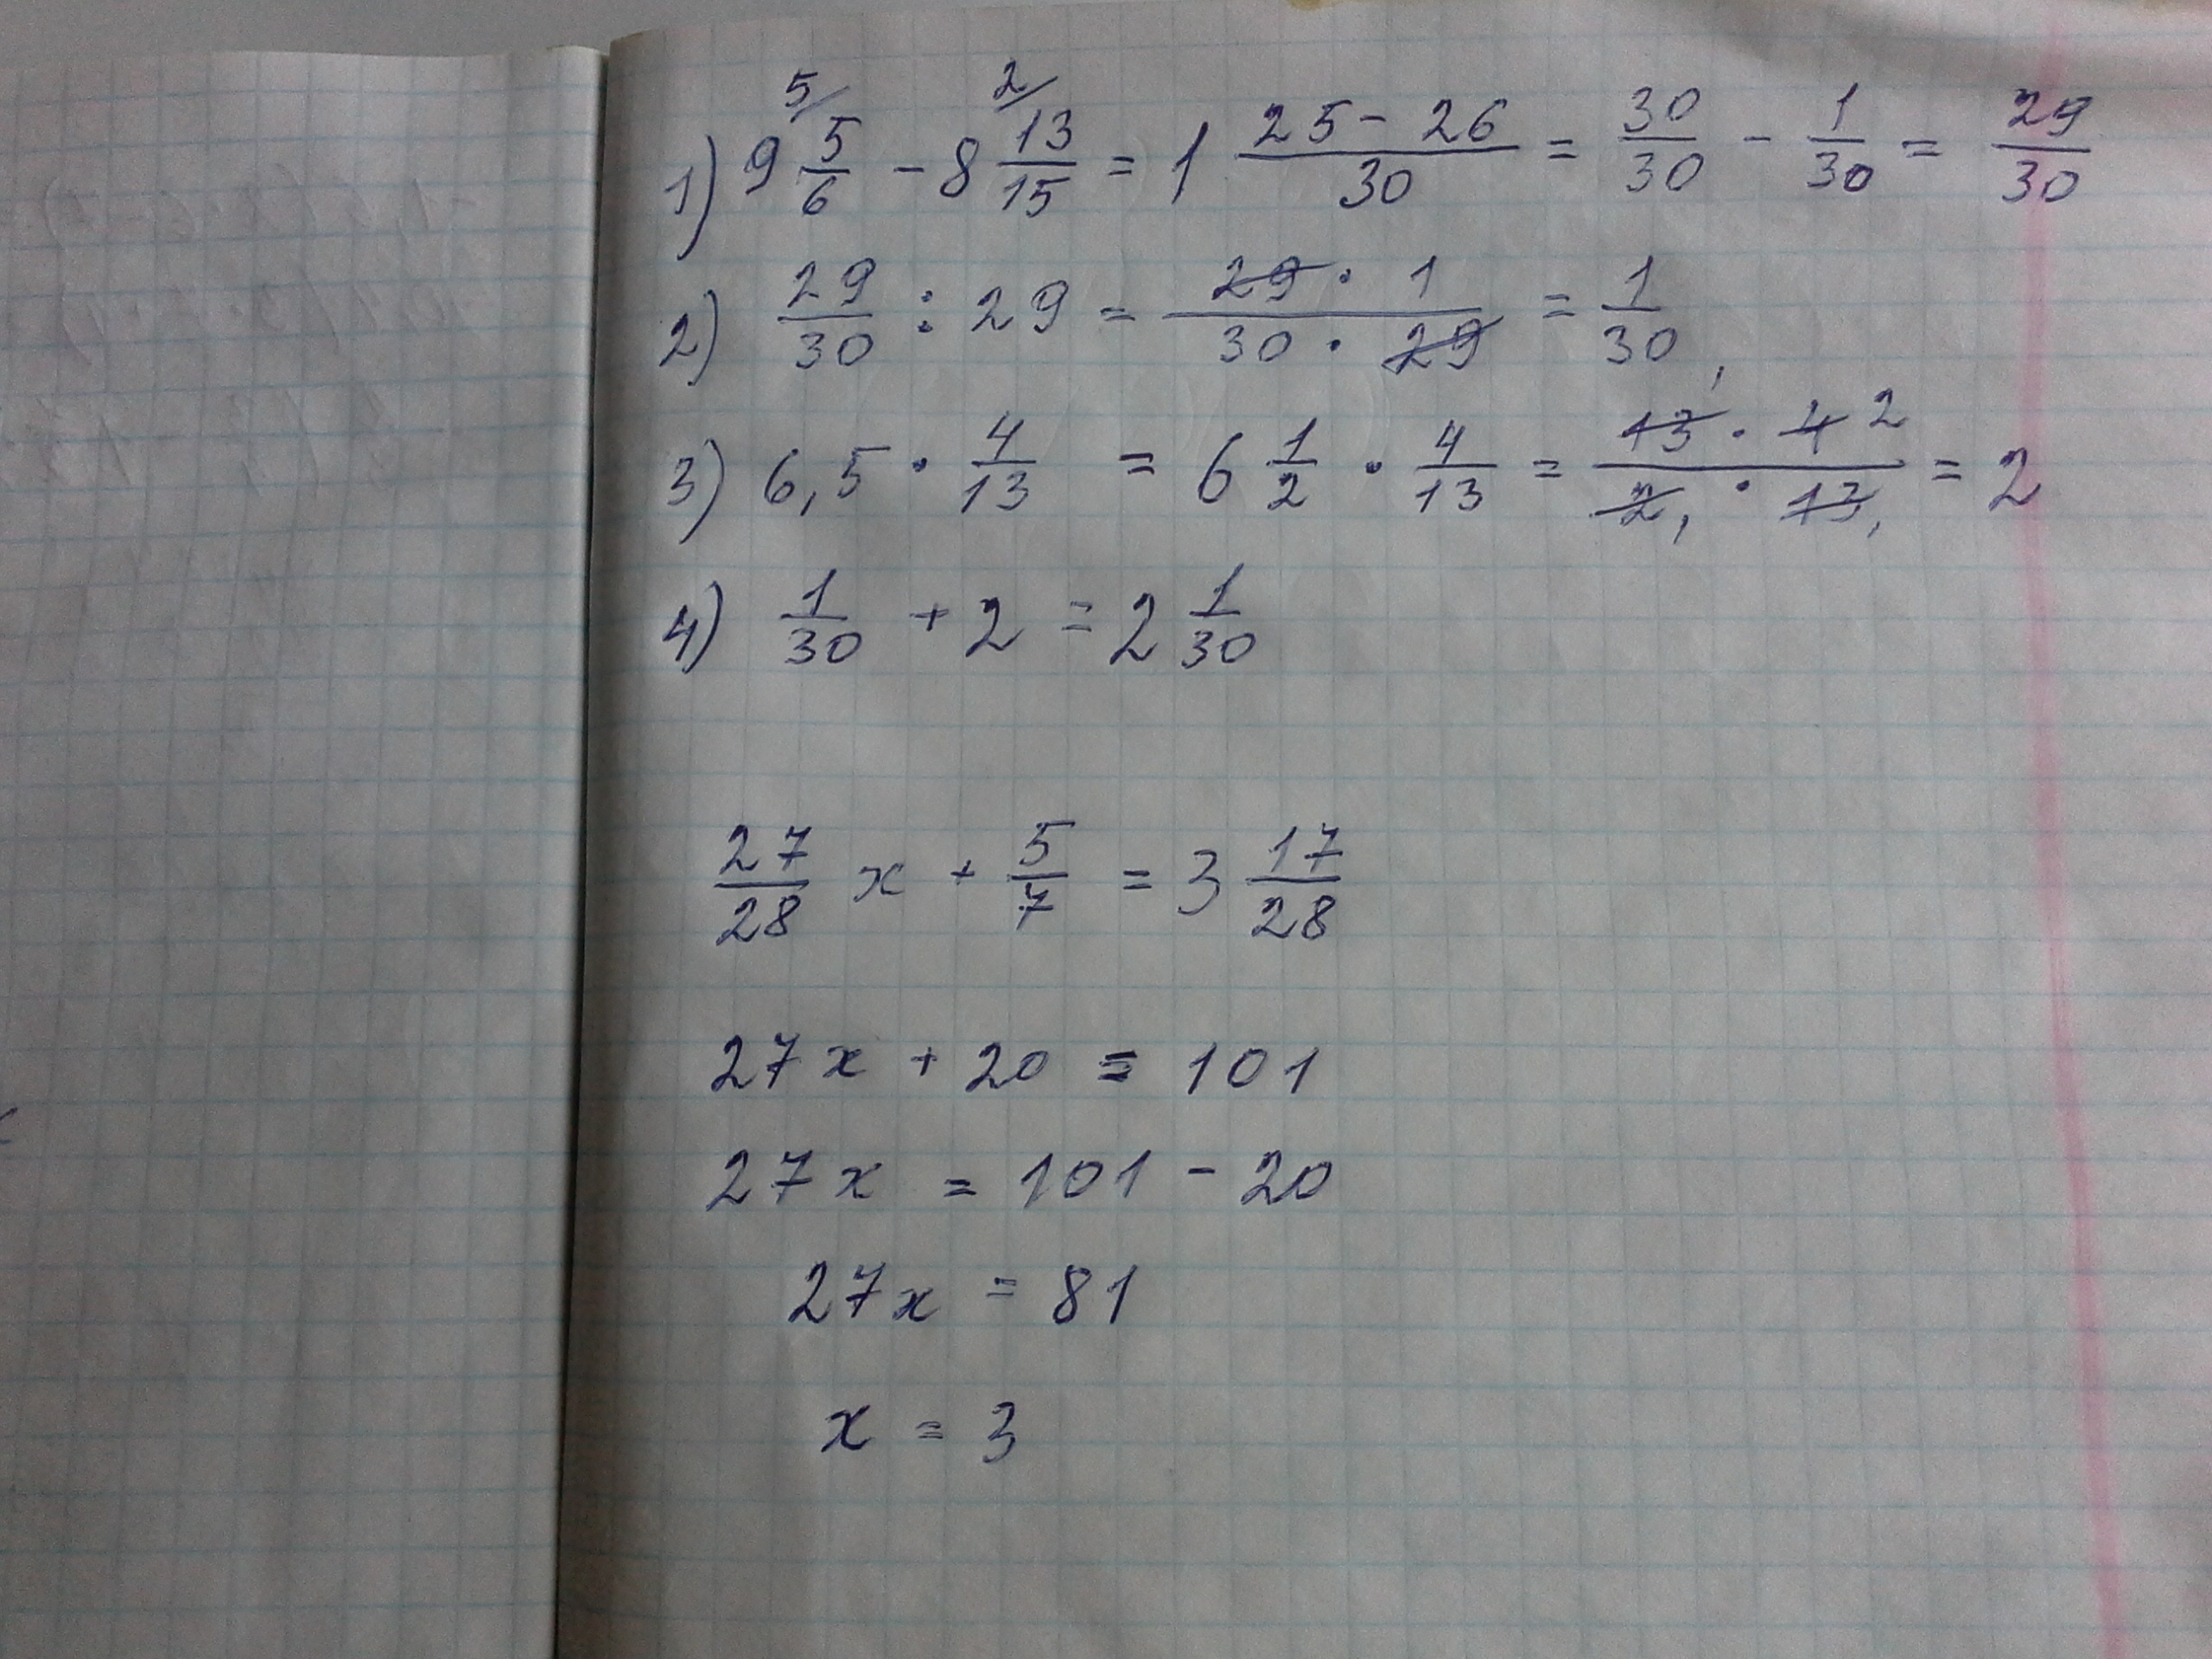 1) 9 5/6 - 8 13/15 = 1 (25 - 26)/30 = 30/30 - 1/30 = 29/30
2) 29/30 : 29 = (29 · 1)/(30 · 29) = 1/30
3) 6,5 · 4/13 = 6 1/2 · 4/13 = (13 · 4)/(2 · 13) = 2
4) 1/30 + 2 = 2 1/30
27/28 x + 5/7 = 3 17/28
27x + 20 = 101
27x = 101 - 20
27x = 81
x = 3